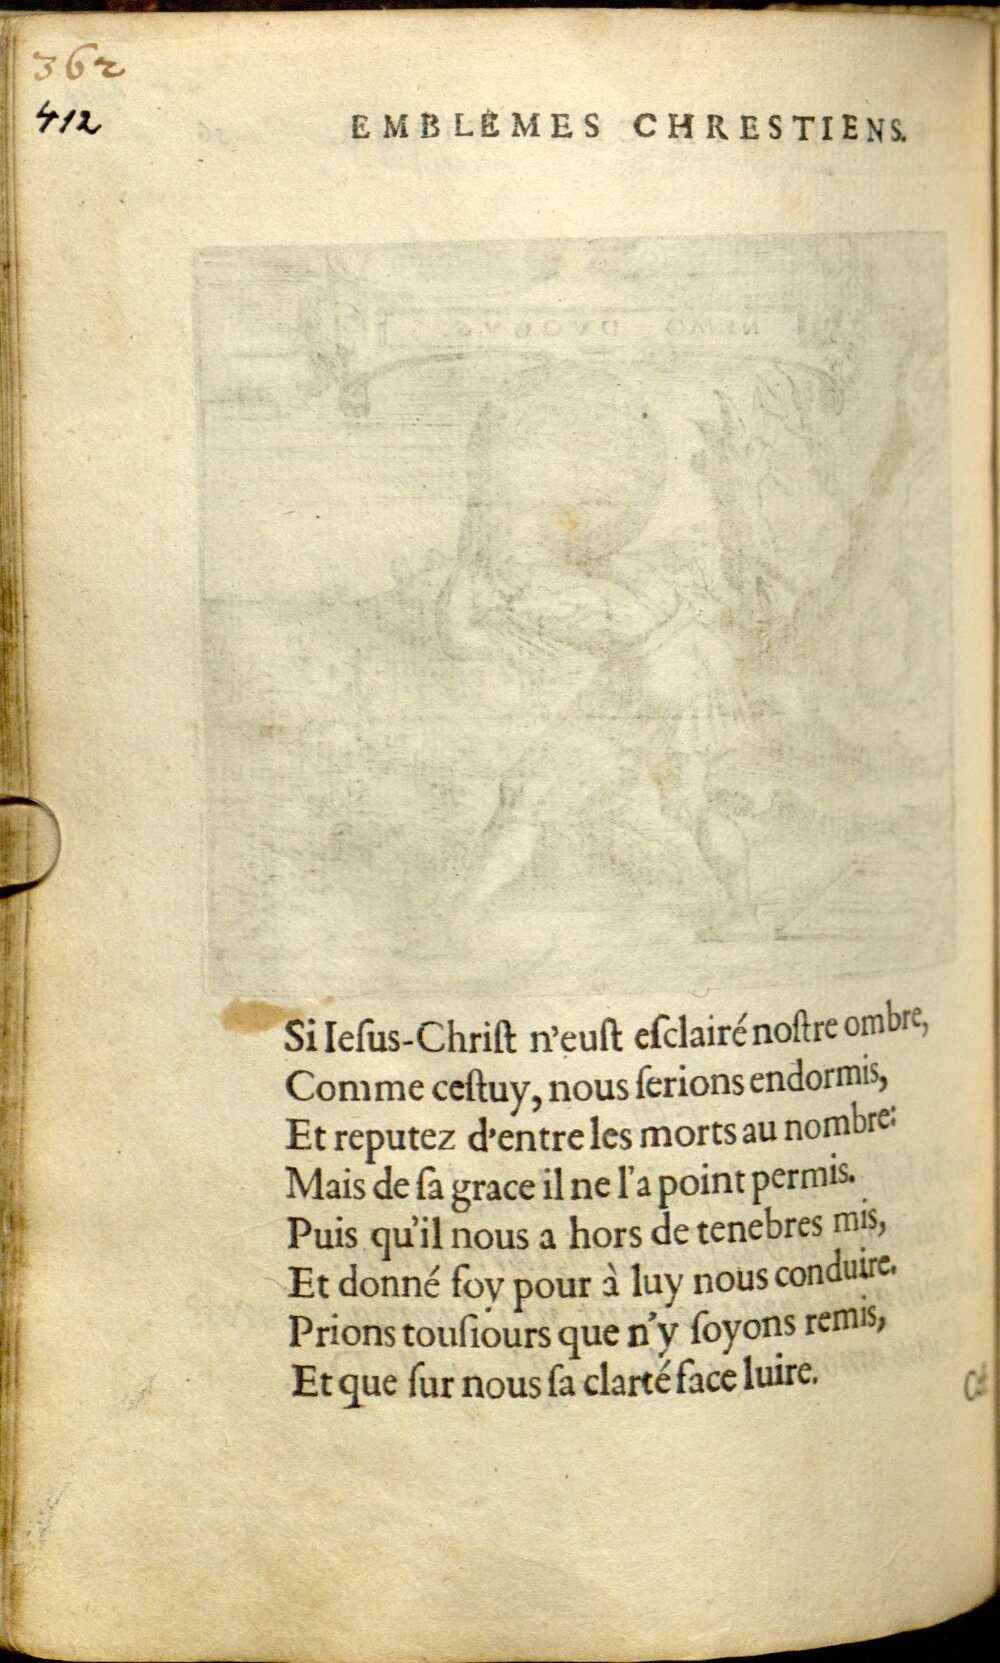 362
412
EMBLEMES CHRESTIENS.
NEMO DVOBVS
Si Ieſus-Chriſt n'euſt eſclairé noſtre ombre,
Comme ceſtuy, nous ſerions endormis,
Et reputez d'entre les morts au nombre:
Mais de ſa grace il ne l'a point permis.
Puis qu'il nous a hors de tenebres mis,
Et donné foy pour à luy nous conduire.
Prions touſiours que n'y ſoyons remis,
Et que ſur nous ſa clarté face luire.